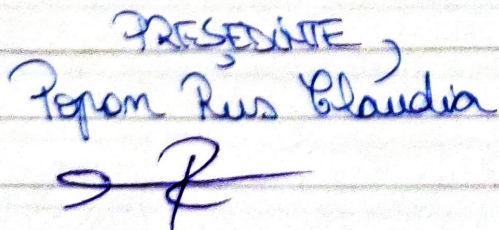 PREȘEDINTE,
Popon Rus Claudia